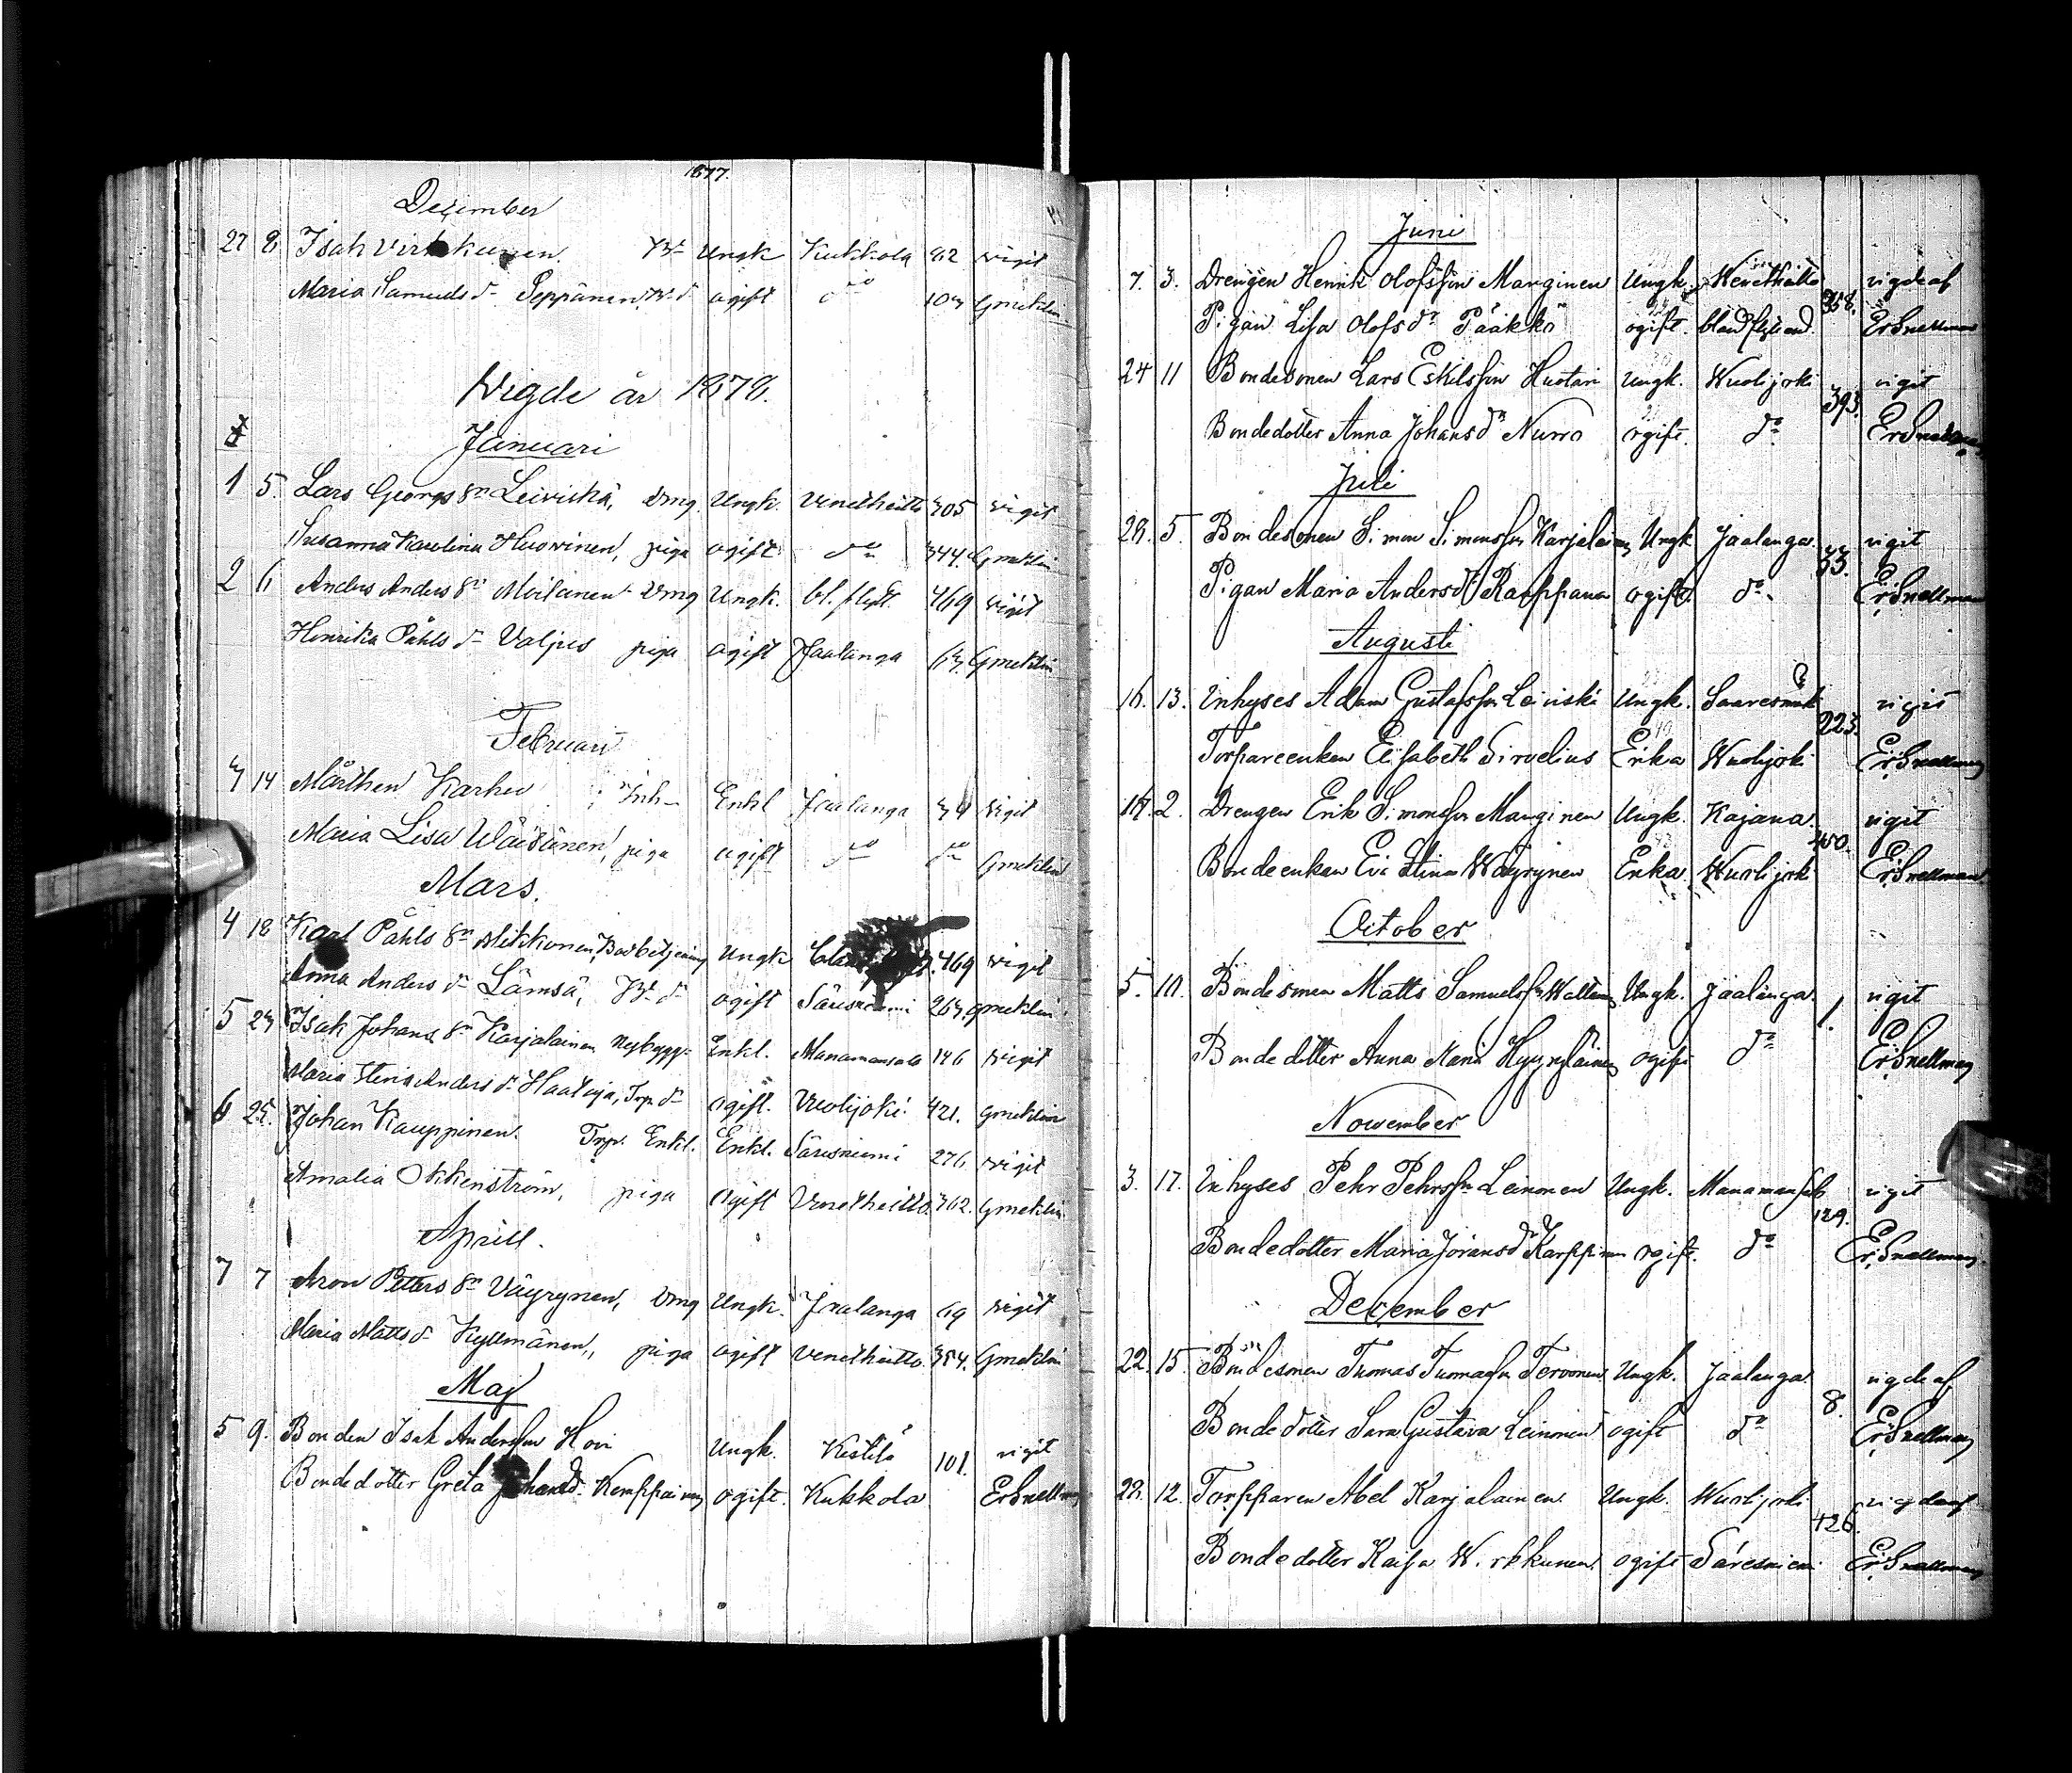 1877.
December
27 8 Isak Virkkunen. Bd Ungk Kukkola 82 vigit
Maria Samuels dr Seppänen, Bd dr ogift do 103 Gmeklin
Vigde år 1878.
Januari
1 5. Lars Georgs sn Leiviskä, drng Ungk. Venetheitto 305 vigit
Susanna Karolina Huovinen, piga ogift do 344. Gmeklin
2 6 Anders Anders sn Moilanen drng Ungk. bl. flytt. 469 vigit
Henrika Påhls dr Valjus piga ogift Jaalanga 63. Gmeklin
Februari
3 14 Mårthen Karhu Inh Enkl Jaalanga 34 vigit
Maria Lisa Wäisänen, piga ogift do do Gmeklin
Mars.
4 18 Karl Påhls sn Mikkonen, Ungk 469 vigit
Anna Anders dr Lämsä, Bd dr ogift Säresniemi 263. Gmeklin
5 23 Isak Johans sn Karjalainen Nybygg. Enkl. Manamansalo 146 vigit
Maria Stina Anders dr Haataja, Trp. dr ogift. Vuolijoki. 421. Gmeklin
6 25. Johan Kauppinen. Trp. Enkl. Enkl. Säresniemi 276 vigit
Amalia Okkenström, piga ogift Venetheitto. 302. Gmeklin
Aprill.
7 7 Aron Petters sn Väyrynen, drng Ungk. Jaalanga 69 vigit
Maria Matts dr Kyllmänen, piga ogift Venetheitto. 354. Gmeklin
Maj
5 9. Bonden Isak Andersson Hovi Ungk. Kestilä 101. vigit
Bondedotter Greta Johansd. Kemppainen ogift. Kukkola ErSnellman
Juni
7. 3. Drengen Henrik Olofsson Manginen Ungk. Wenetheitto 358. vigde af
Pigan Lisa Olofs dr Pääkkö ogift. bland flytt and. ErSnellman
24 11 Bondesonen Lars Eskilsson Huotari Ungk. Wuolijoki 393. vigit
Bondedotter Anna Johans dr Nurro ogift. do ErSnellman
Juli
28. 5. Bondesonen Simon Simonsson Karjalainen Ungk Jaalanga 33. vigit
Pigan Maria Anders dr Karppanen ogift. do. ErSnellman
Augusti
16. 13. Inhyses Adam Gustafsson Leiviskä Ungk. Saaresniemi 223. vigit
Torpareenkan Elisabeth Sirvelius Enka Wuolijoki ErSnellman
18. 2. Drengen Erik Simonsson Manginen Ungk. Kajana 450. vigit
Bondeenkan Eva Stina Wäyrynen Enka Wuolijoki ErSnellman
October
5. 10. Bondesonen Matts Samuelsson Ungk. Jaalanga 1. vigit
Bondedotter Anna Maria Hyyryläinen ogift do ErSnellman
November
3. 17. Inhyses Pehr Pehrsson Leinonen Ungk. Manamansalo 129. vigit
Bondedotter Maria Joransdr Karppinen ogift. do ErSnellman
December
22. 15. Bondesonen Thomas Tuomasson Tervonen Ungk. Jaalanga 8. vigde af
Bondedotter Sara Gustava Leinonen ogift do ErSnellman
28. 12. Torpparen Abel Karjalainen. Ungk. Wuolijoki 426. vigde af
Bondedotter Kaisa Wirkkunen. ogift Säresniemi ErSnellman